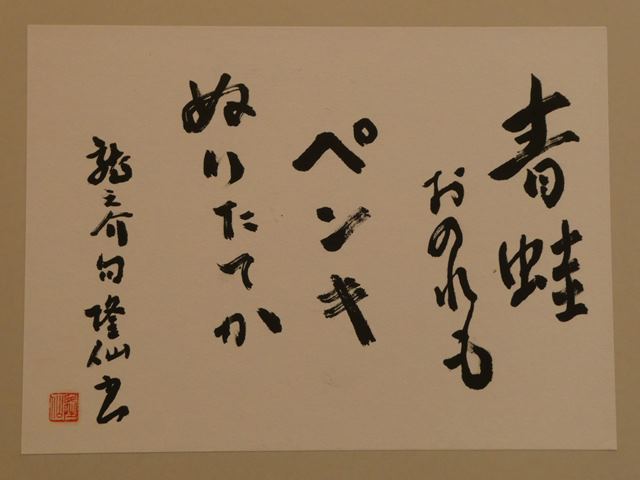 青蛙
おのれも
ペンキ
ぬりたてか
龍之介句 隆仙書